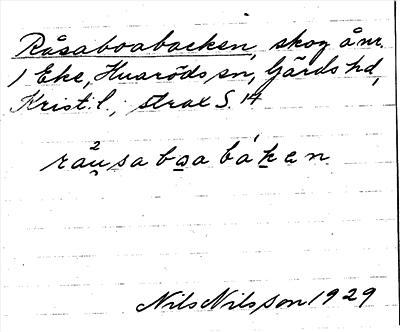 Råsaboabacken, skog å nr.
1 Eke, Huaröds sn, Gärds hd,
Krist. l.; strax S. 14
råu̯sabo̲a bák̲e̲n
Nils Nilsson 1929